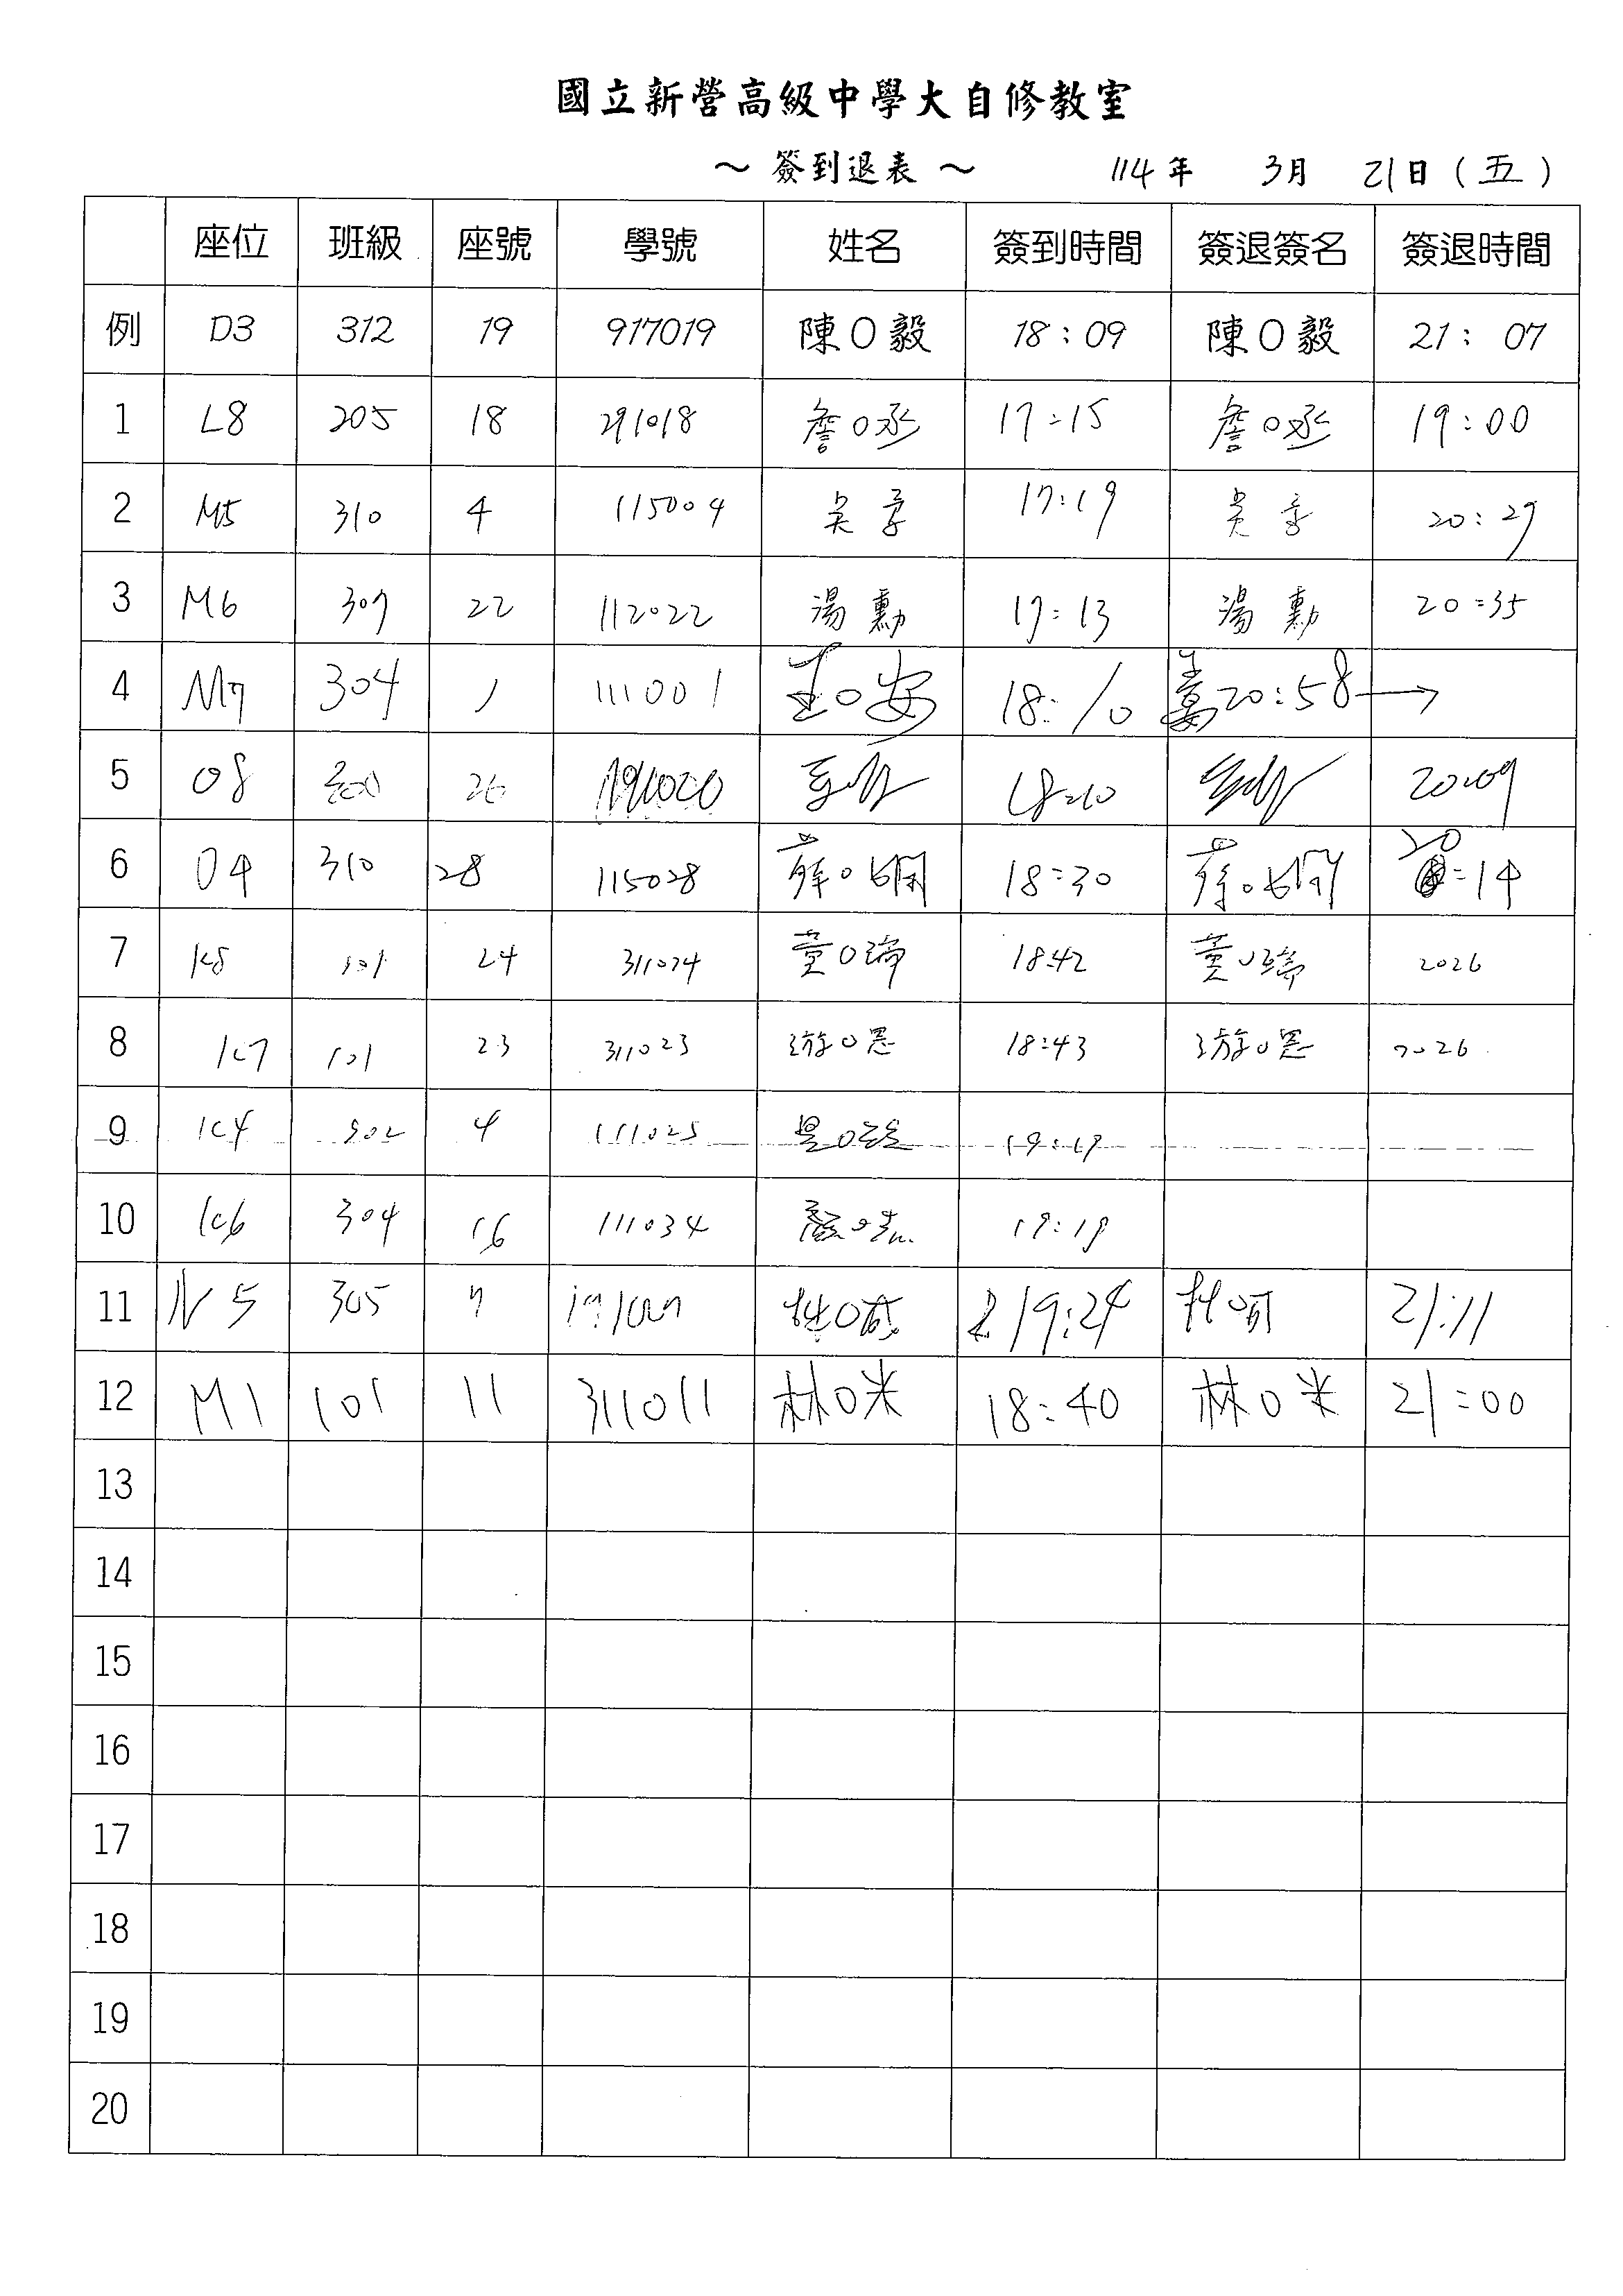 國立新營高級中學大自修教室
～ 簽到退表 ～ 114年 3月 21日(五)
座位 班級 座號 學號 姓名 簽到時間 簽退簽名 簽退時間
例 D3 312 19 917019 陳O毅 18:09 陳O毅 21: 07
1 L8 205 18 291018 詹O丞 17:15 詹O丞 19:00
2 M5 310 4 115004 吳 17:19 20:29
3 M6 307 22 112022 湯 勳 17:13 湯 勳 20:35
4 M7 304 1 111001 O安 18:10 20:58→
5 O8 26 18:10 20:09
6 O4 310 28 115028 O 18:30 O 20:14
7 K8 101 24 311024 董O 18:42 董O 2026
8 K7 101 23 311023 游O恩 18:43 游O恩 2026
9 K4 302 4 111025 O 19:19
10 K6 304 16 111034 O 19:19
11 N5 305 7 林O 19:24 林O 21:11
12 M1 101 11 311011 林O米 18:40 林O米 21:00
13
14
15
16
17
18
19
20